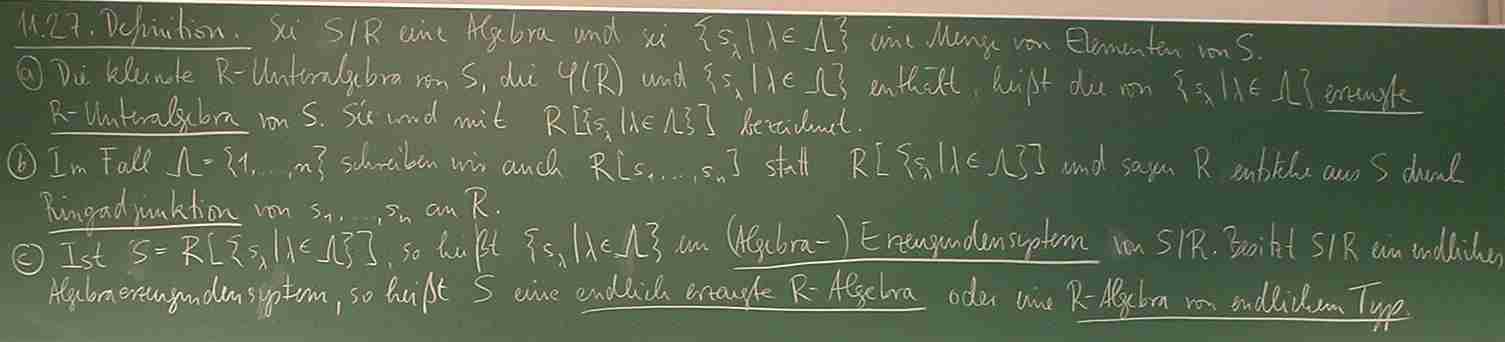 11.27. Definition. Sei S/R eine Algebra und sei {s_λ | λ ∈ Λ} eine Menge von Elementen von S.
ⓐ Die kleinste R-Unteralgebra von S, die φ(R) und {s_λ | λ ∈ Λ} enthält, heißt die von {s_λ | λ ∈ Λ} erzeugte
R-Unteralgebra von S. Sie wird mit R[{s_λ | λ ∈ Λ}] bezeichnet.
ⓑ Im Fall Λ = {1, ..., n} schreiben wir auch R[s_1, ..., s_n] statt R[{s_λ | λ ∈ Λ}] und sagen R entstehe aus S durch
Ringadjunktion von s_1, ..., s_n an R.
ⓒ Ist S = R[{s_λ | λ ∈ Λ}], so heißt {s_λ | λ ∈ Λ} ein (Algebra-) Erzeugendensystem von S/R. Besitzt S/R ein endliches
Algebraerzeugendensystem, so heißt S eine endlich erzeugte R-Algebra oder eine R-Algebra von endlichem Typ.